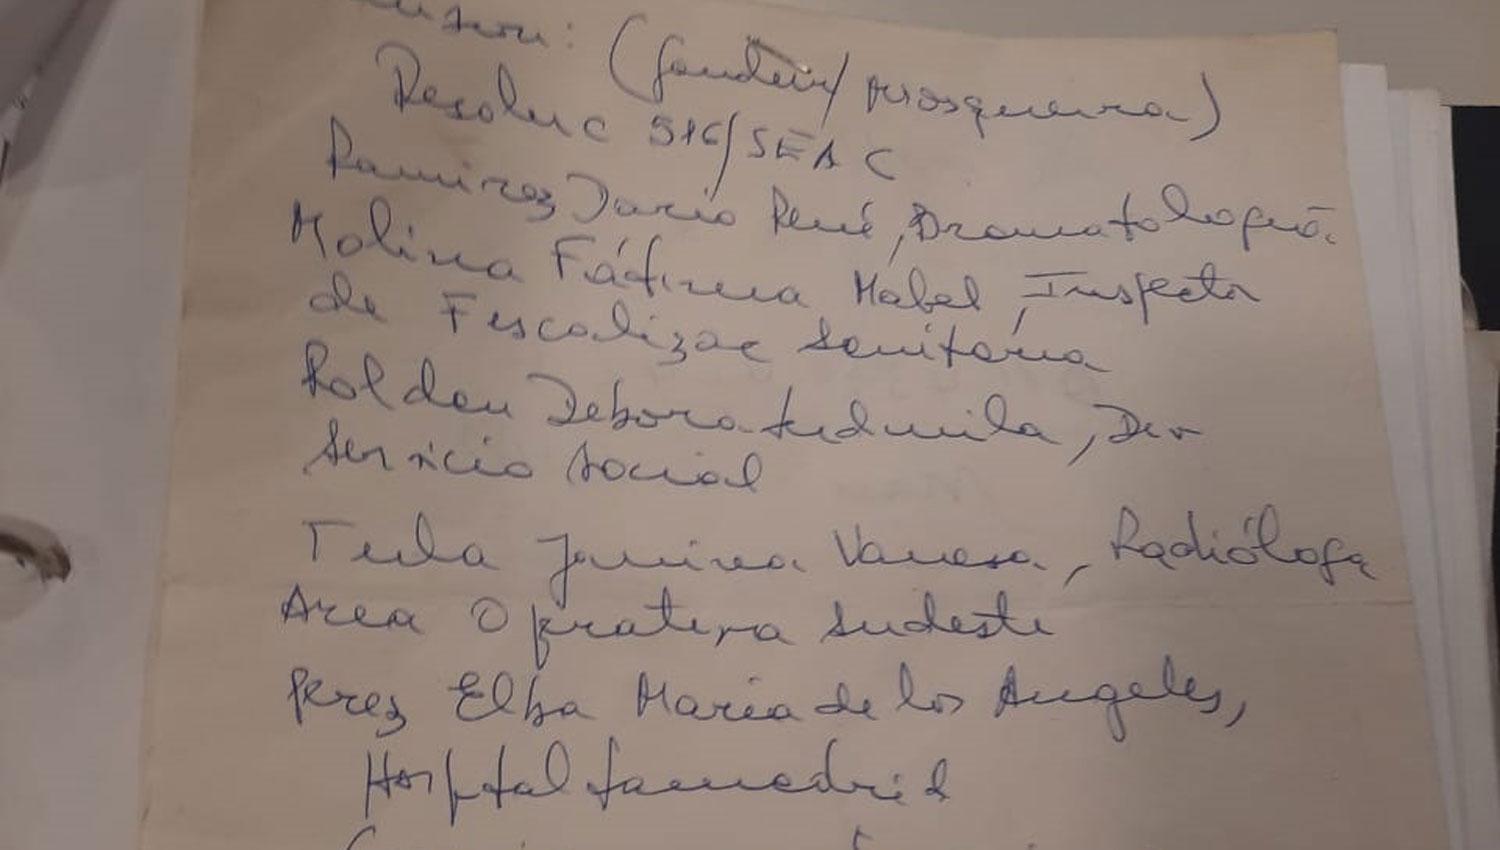 (Gandein/Mosqueira)
Resoluc 516/SEAC
Ramirez Dario René, Bromatología
Molina Fátima Mabel, Inspector
de Fiscalizac Sanitaria
Roldan Debora Ludmila, Der
Servicio Social
Tula Janina Vanesa, Radióloga
Area Operativa Sudeste
Perez Elba Maria de los Angeles,
Hospital